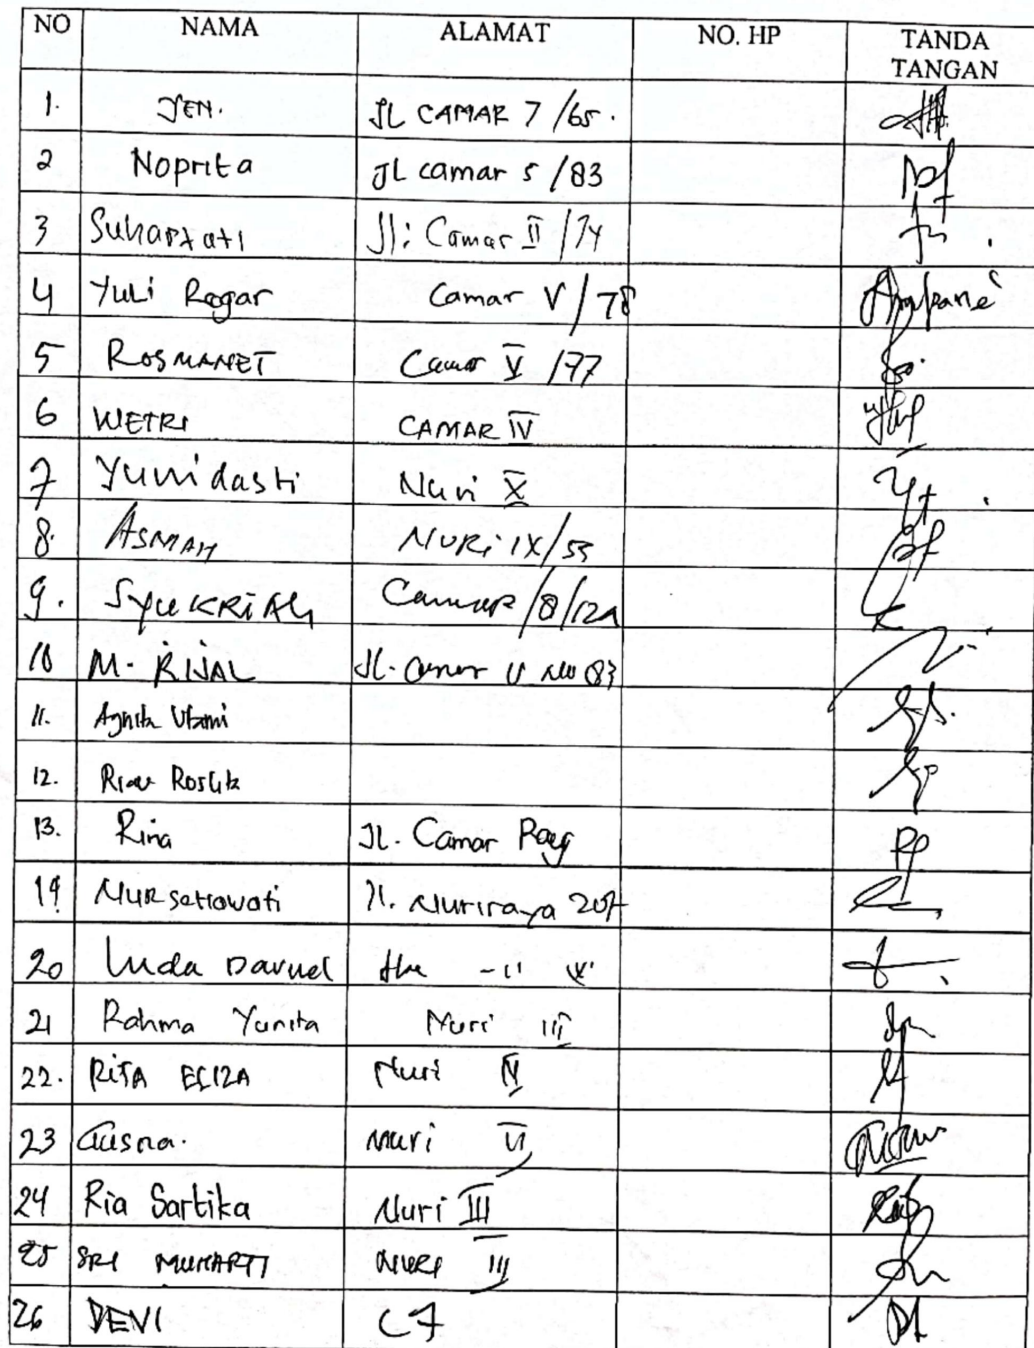 NO NAMA ALAMAT NO. HP TANDA TANGAN
1. JEN. JL CAMAR 7 /65.
2 Noprita JL camar 5 /83
3 Suhartati Jl: Camar II /74
4 Yuli Regar Camar V / 78
5 ROSMANET Camar V /77
6 WETRI CAMAR IV
7 Yunidasti Nuri X
8. ASMAH NURi IX/55
9. SyuKRiAh Camar /8/12A
10 M. RiJAL Jl. Camar V No 83
11. Agnita Utami
12. Roslita
13. Rina JL. Camar Raya
19 Nursetiowati Jl. Nuriraya 207
20
21 Rahma Yunita Nuri III
22. RITA ELIZA Nuri IV
23 Gusna. Nuri VI
24 Ria Sartika Nuri III
25 SRI MUHARTI NURI III
26 DEVI C7